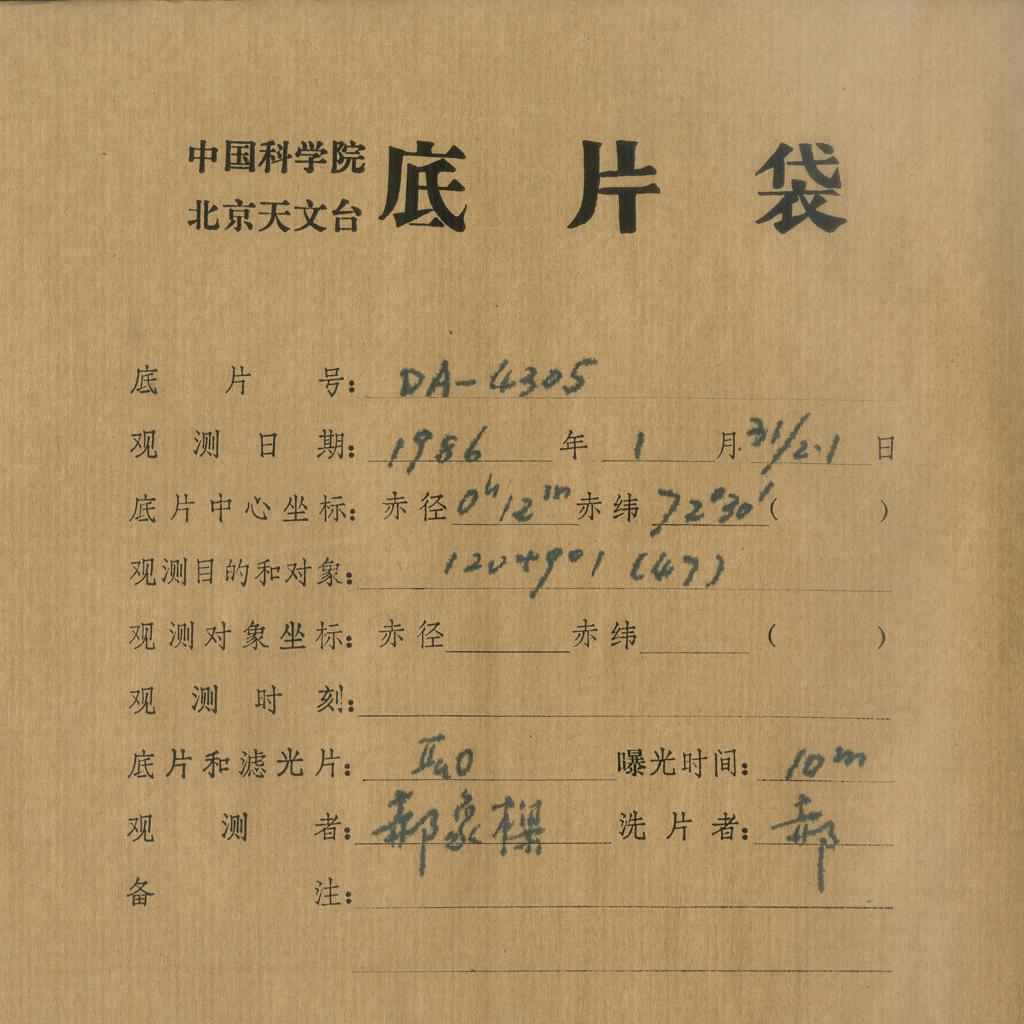 中国科学院
北京天文台
底片袋
底片号：DA-4305
观测日期：1986年1月31/2.1日
底片中心坐标：赤径0h12m赤纬72°30′( )
观测目的和对象：1204901 (47)
观测对象坐标：赤径 赤纬 ( )
观测时刻：
底片和滤光片：IIaO 曝光时间：10m
观测者：郝象樑 洗片者：郝
备注：